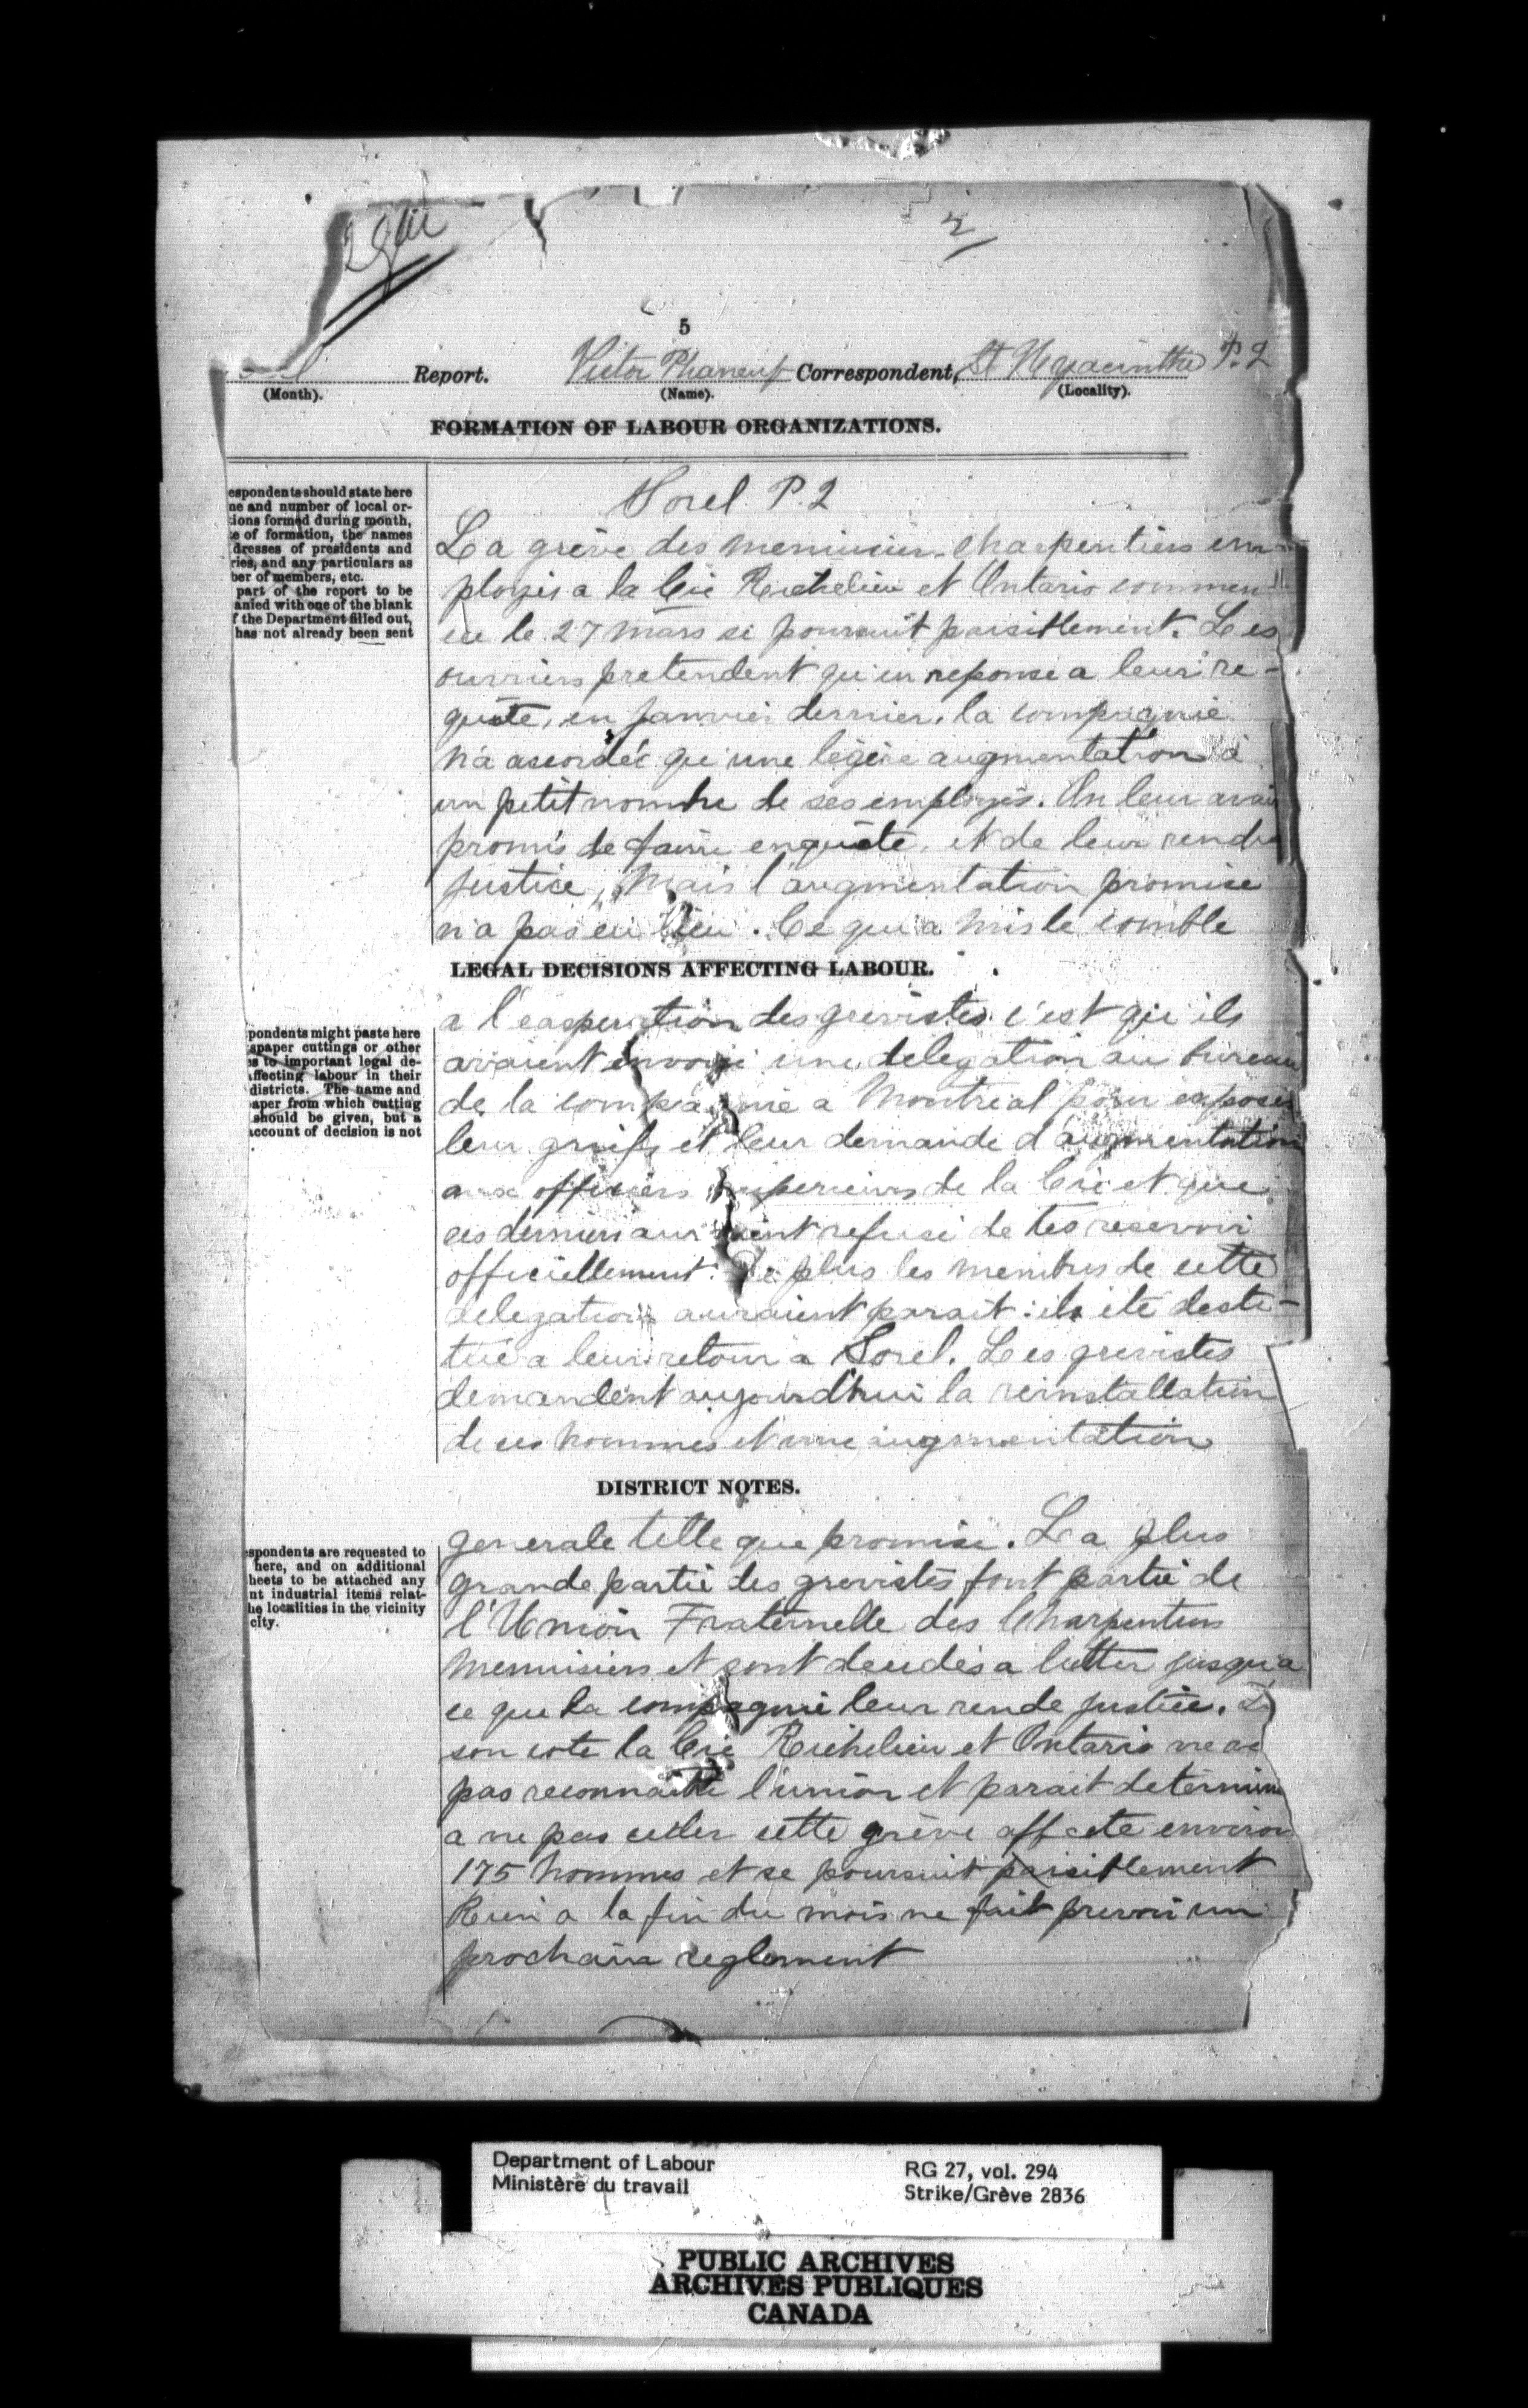 2
5
Report. Victor Phaneuf Correspondent, St Hyacinthe P. Q
(Month). (Name). (Locality).
FORMATION OF LABOUR ORGANIZATIONS.
espondents should state here
ne and number of local or-
tions formed during month,
e of formation, the names
dresses of presidents and
ries, and any particulars as
ber of members, etc.
part of the report to be
anied with one of the blank
f the Department filled out,
has not already been sent
Sorel P. Q
La grève des menuisiers-charpentiers em-
ployés a la Cie Richelieu et Ontario commen
cee le 27 mars se poursuit paisiblement. Les
ouvriers pretendent qu'en reponse a leur re-
quête, en janvier dernier, la compagnie
n'a accordée qu'une légère augmentation à
un petit nombre de ses employés. On leur avait
promis de faire enquête, et de leur rendre
justice, Mais l'augmentation promise
n'a pas eu lieu. Ce qui a mis le comble
LEGAL DECISIONS AFFECTING LABOUR.
pondents might paste here
spaper cuttings or other
as to important legal de-
affecting labour in their
districts. The name and
aper from which cutting
should be given, but a
account of decision is not
a l'exasperation des grevistes c'est qu'ils
avaient envoyé une delegation au bureau
de la compagnie a Montreal pour exposer
leur griefs et leur demande d'augmentation
aux officiers superieurs de la Cie et que
ces derniers auraient refusé de les recevoir
officiellement. De plus les membres de cette
delegation auraient parait-ils été desti-
tué a leur retour a Sorel. Les grevistes
demandent aujourd'hui la reinstallation
de ces hommes et une augmentation
DISTRICT NOTES.
spondents are requested to
here, and on additional
heets to be attached any
nt industrial items relat-
he localities in the vicinity
city.
generale telle que promise. La plus
grande partie des grevistes font partie de
l'Union Fraternelle des Charpentiers
Menuisiers et sont decidés a lutter jusqu'a
ce que la compagnie leur rende justice. D
son cote la Cie Richelieu et Ontario ne
pas reconnaitre l'union et parait determine
a ne pas ceder cette grève affecte environ
175 hommes et se poursuit paisiblement
Rien a la fin du mois ne fait prevoir un
prochain reglement
Department of Labour
Ministère du travail
RG 27, vol. 294
Strike/Grève 2836
PUBLIC ARCHIVES
ARCHIVES PUBLIQUES
CANADA